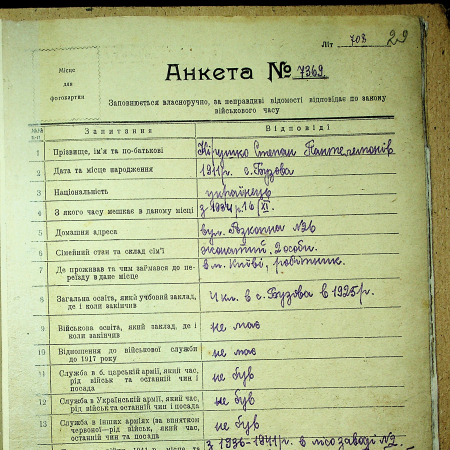 Літ 703 29
Місце
для
фотокартки
Анкета № 7369
Заповнюється власноручно, за неправдиві відомості відповідає по закону
військового часу
№№ Запитання Відповіді
1 Прізвище, ім'я та по-батькові Степан Пантелемонів
2 Дата та місце народження 1911 р. с. Бузова
3 Національність українець
4 З якого часу мешкає в даному місці з 1934 р. 16/XI.
5 Домашня адреса вул. №26
6 Сімейний стан та склад сім'ї жонатий, 2 особи.
7 Де проживав та чим займався до пе-
реїзду в дане місце в м. Київі, робітник.
8 Загальна освіта, який учбовий заклад,
де і коли закінчив 4 кл. в с. Бузова в 1925 р.
9 Військова освіта, який заклад, де і
коли закінчив не має
10 Відношення до військової служби
до 1917 року не має
11 Служба в б. царській армії, який час,
рід військ та останній чин і
посада не був
12 Служба в Українській армії, який час,
рід військ та останній чин і посада не був
13 Служба в інших арміях (за винятком
червоної—рід військ, який час,
останній чин та посада не був
з 1936-1941 р. в лісозаводі №2